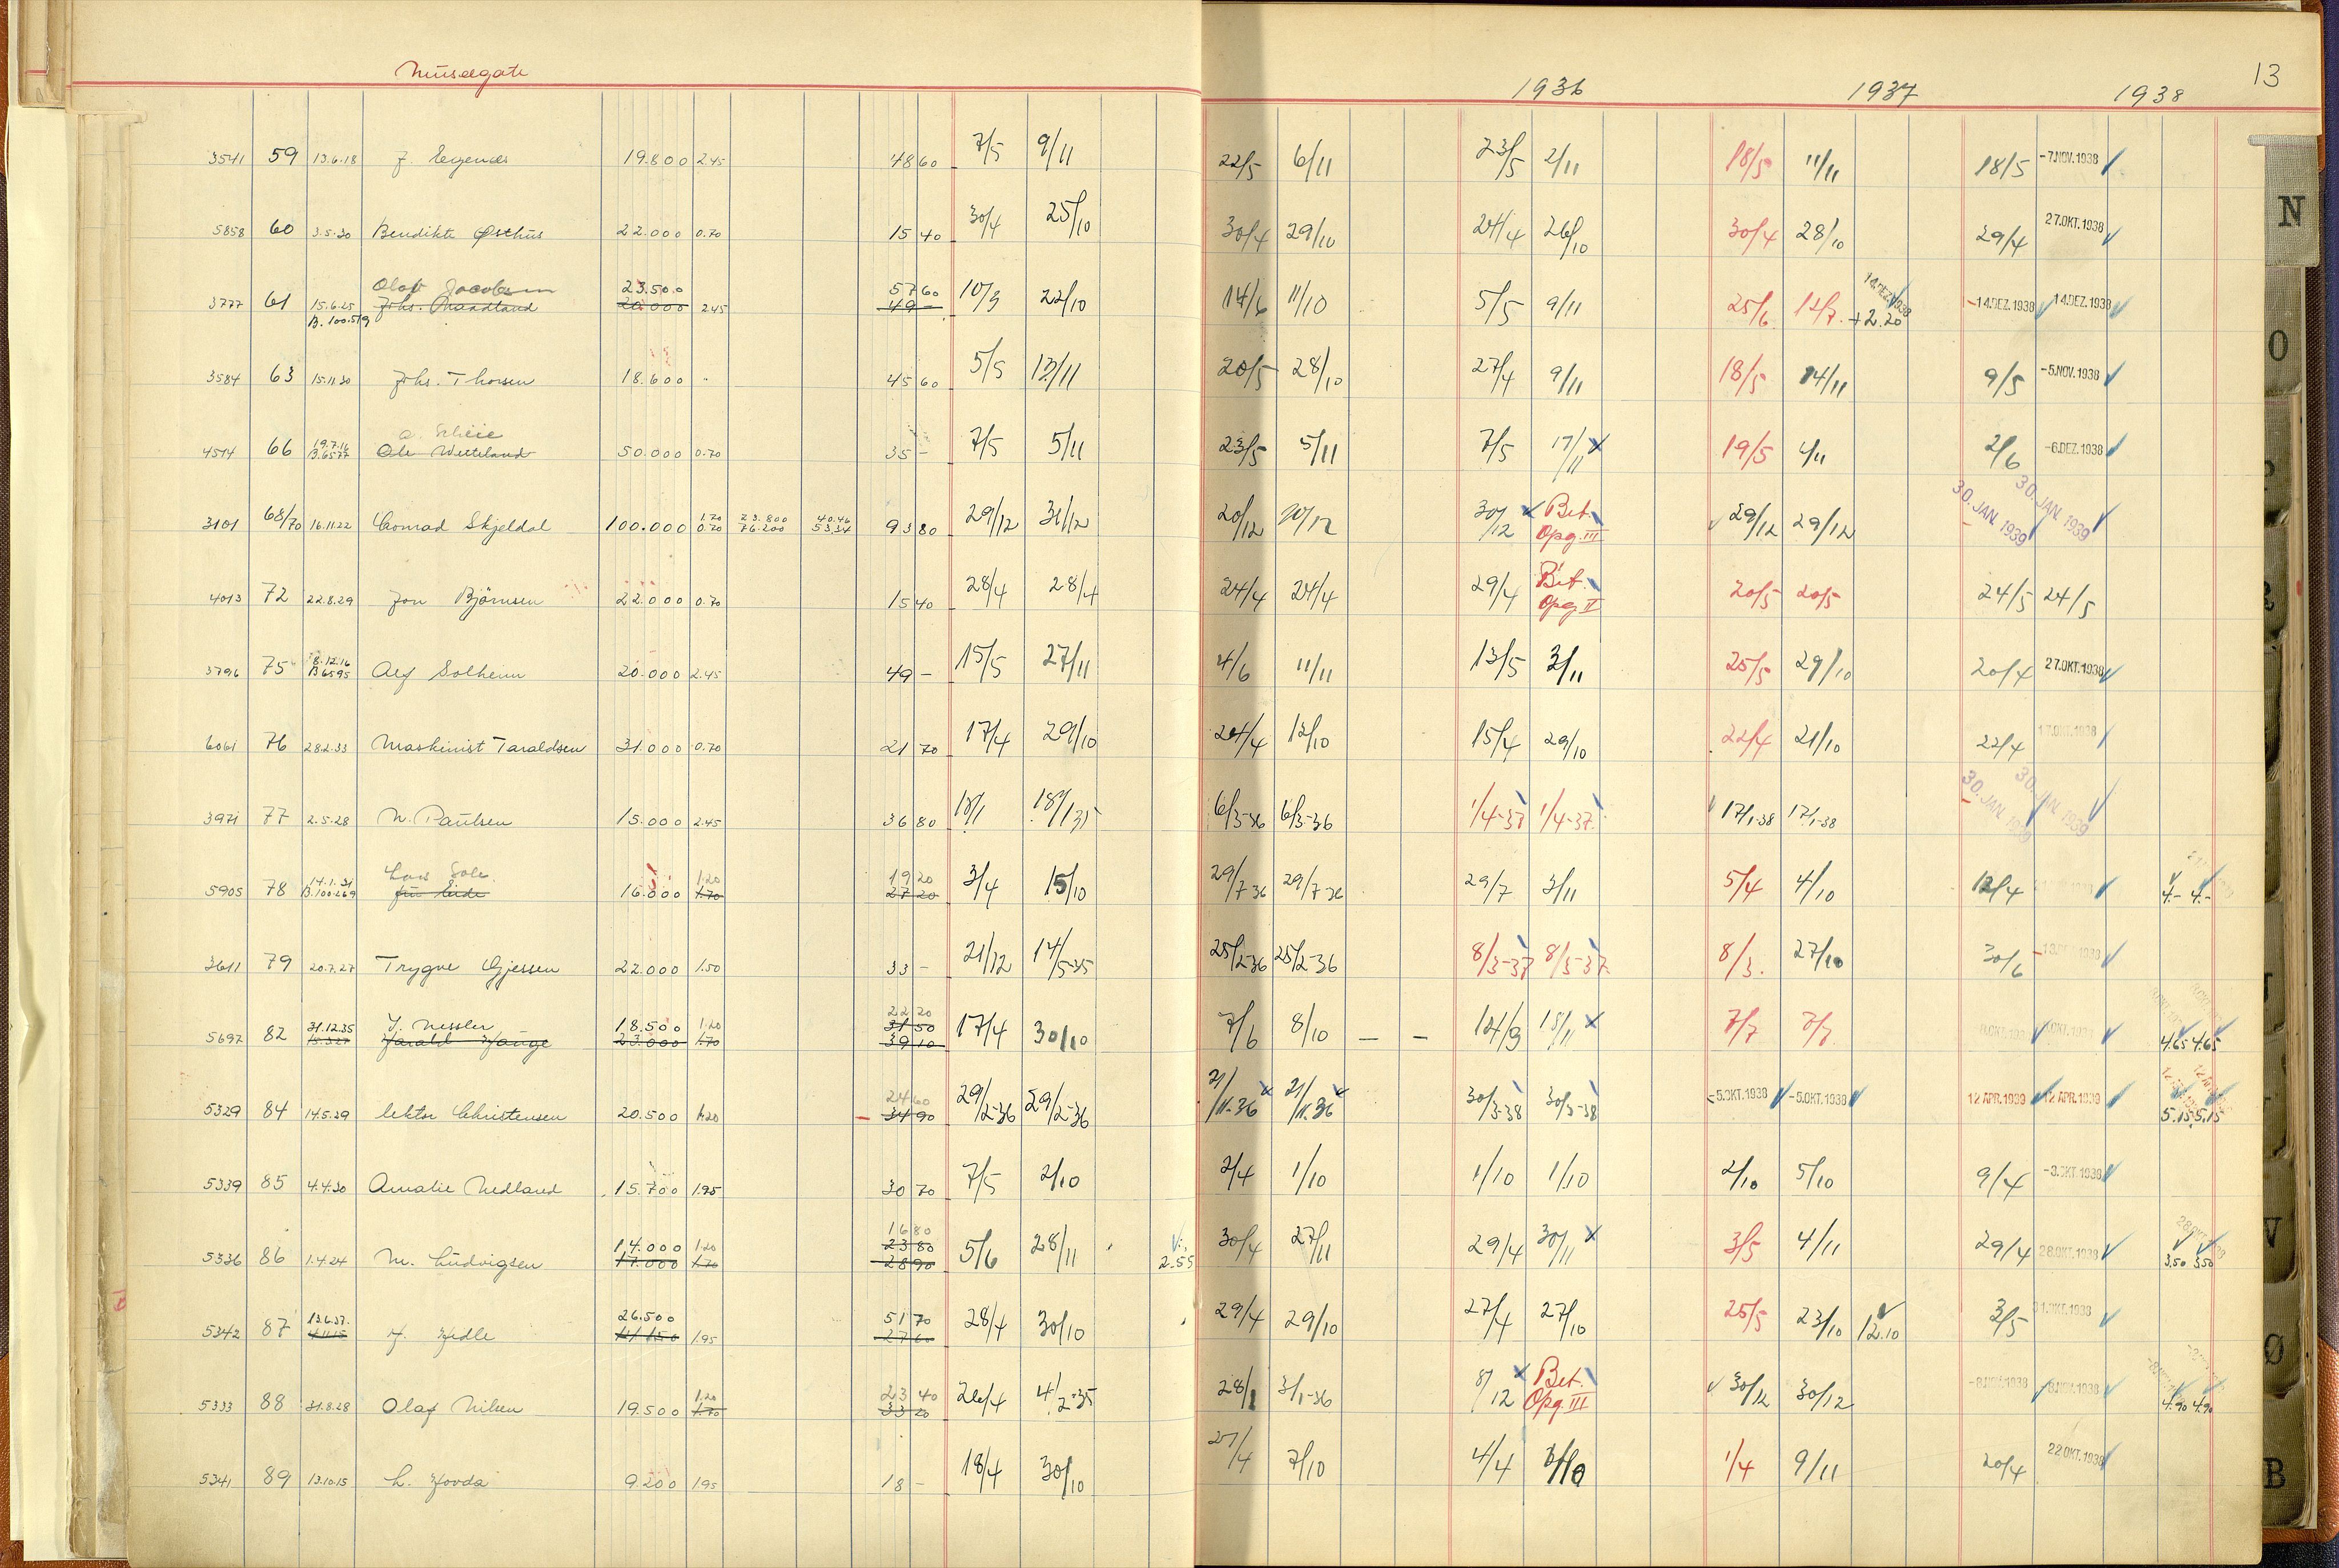 Museegate
1936 1937 1938 13
3541 59 13.6.18 19.800 2.45 48 60 7/5 9/11 22/5 6/11 23/5 2/11 18/5 11/11 18/5 -7.NOV.1938
5858 60 3.5.30 Bendikte Østhus 22.000 0.70 15 40 30/4 25/10 30/4 29/10 24/4 26/10 30/4 28/10 29/4 27.OKT.1938
Olav Jacobsen 23.500 57 60 14.DEZ.1938
3777 61 15.6.25 Johs. 20.000 2.45 49 - 10/9 22/10 14/6 11/10 5/5 9/11 25/6 12/7 +2.20 -14.DEZ.1938 14.DEZ.1938
B.100.519
3584 63 15.11.30 Johs. Thorsen 18.600 45 60 5/5 13/11 20/5 28/10 27/4 9/11 18/5 14/11 9/5 -5.NOV.1938
19.7.16
4514 66 B.6577 Ole 50.000 0.70 35 - 7/5 5/11 23/5 5/11 7/5 17/11 x 19/5 4/11 2/6 -6.DEZ.1938
1.70 23.800 40.46
3101 68/70 16.11.22 Conrad Skjeldal 100.000 0.70 76.200 53.34 93 80 29/12 31/12 20/12 20/12 30/12 x Bet. Opg. III 29/12 29/12 30.JAN.1939 30.JAN.1939
4013 72 22.8.29 Jon Björnsen 22.000 0.70 15 40 28/4 28/4 24/4 24/4 29/4 Bet. Opg. II 20/5 20/5 24/5 24/5
8.12.16
3796 75 B.6595 Alf Solheim 20.000 2.45 49 - 15/5 27/11 4/6 11/11 13/5 3/11 25/5 29/10 20/4 27.OKT.1938
6061 76 28.2.33 Maskinist Taraldsen 31.000 0.70 21 70 17/4 29/10 24/4 12/10 15/4 29/10 22/4 21/10 22/4 17.OKT.1938
3971 77 2.5.28 N. Paulsen 15.000 2.45 36 80 18/1 18/1 35 6/3-36 6/3-36 1/4-37 1/4-37 17/1-38 17/1-38 30.JAN.1939 30.JAN.1939
14.1.31 Lars Sole 1.20 19 20
5905 78 B.100.269 16.000 1.70 27 20 3/4 15/10 29/7-36 29/7-36 29/7 3/11 5/4 4/10 12/4 4.- 4.-
3611 79 20.7.27 Trygve Gjessen 22.000 1.50 33 - 21/12 14/5-35 25/2-36 25/2-36 8/3-37 8/3-37 8/3. 27/10 30/6
22 20
31.12.35 J. Nessler 18.500 1.20 31 50
5697 82 15.3.27 Harald Hauge 23.000 1.70 39 10 17/4 30/10 7/6 8/10 - - 14/9 18/11 x 7/7 7/7 4.65 4.65
24 60
5329 84 14.5.29 lektor Christensen 20.500 1.20 34 90 29/2-36 29/2-36 21/11-36 21/11-36 30/3-38 30/3-38 -5.OKT.1938 -5.OKT.1938 12 APR.1939 12 APR.1939 5.15 5.15
5339 85 4.4.30 Amalie Nedland 15.700 1.95 30 70 7/5 2/10 2/4 1/10 1/10 1/10 2/10 5/10 9/4 -3.OKT.1938
16 80
14.000 1.20 23 80
5336 86 1.4.24 M. Ludvigsen 17.000 1.70 28 90 5/6 28/11 2.55 30/4 27/11 29/4 30/11 x 3/5 4/11 29/4 28.OKT.1938 3.50 3.50
13.6.37. 26.500 51 70
5342 87 4.11.15 H. Hedle 14.150 1.95 27 60 28/4 30/10 29/4 29/10 27/4 27/10 25/5 23/10 12.10 3/5 .OKT.1938
1.20 23 40
5333 88 31.8.28 Olaf Nilsen 19.500 1.70 33 20 26/4 4/2-35 28/1 3/1-36 8/12 x Bet. Opg. III 30/12 30/12 -8.NOV.1938 -8.NOV.1938 4.90 4.90
5341 89 13.10.15 L. Hovda 9.200 1.95 18 - 18/4 30/10 27/4 7/10 4/4 3/10 1/4 9/11 20/4 22.OKT.1938
N
O
V
Ø
B